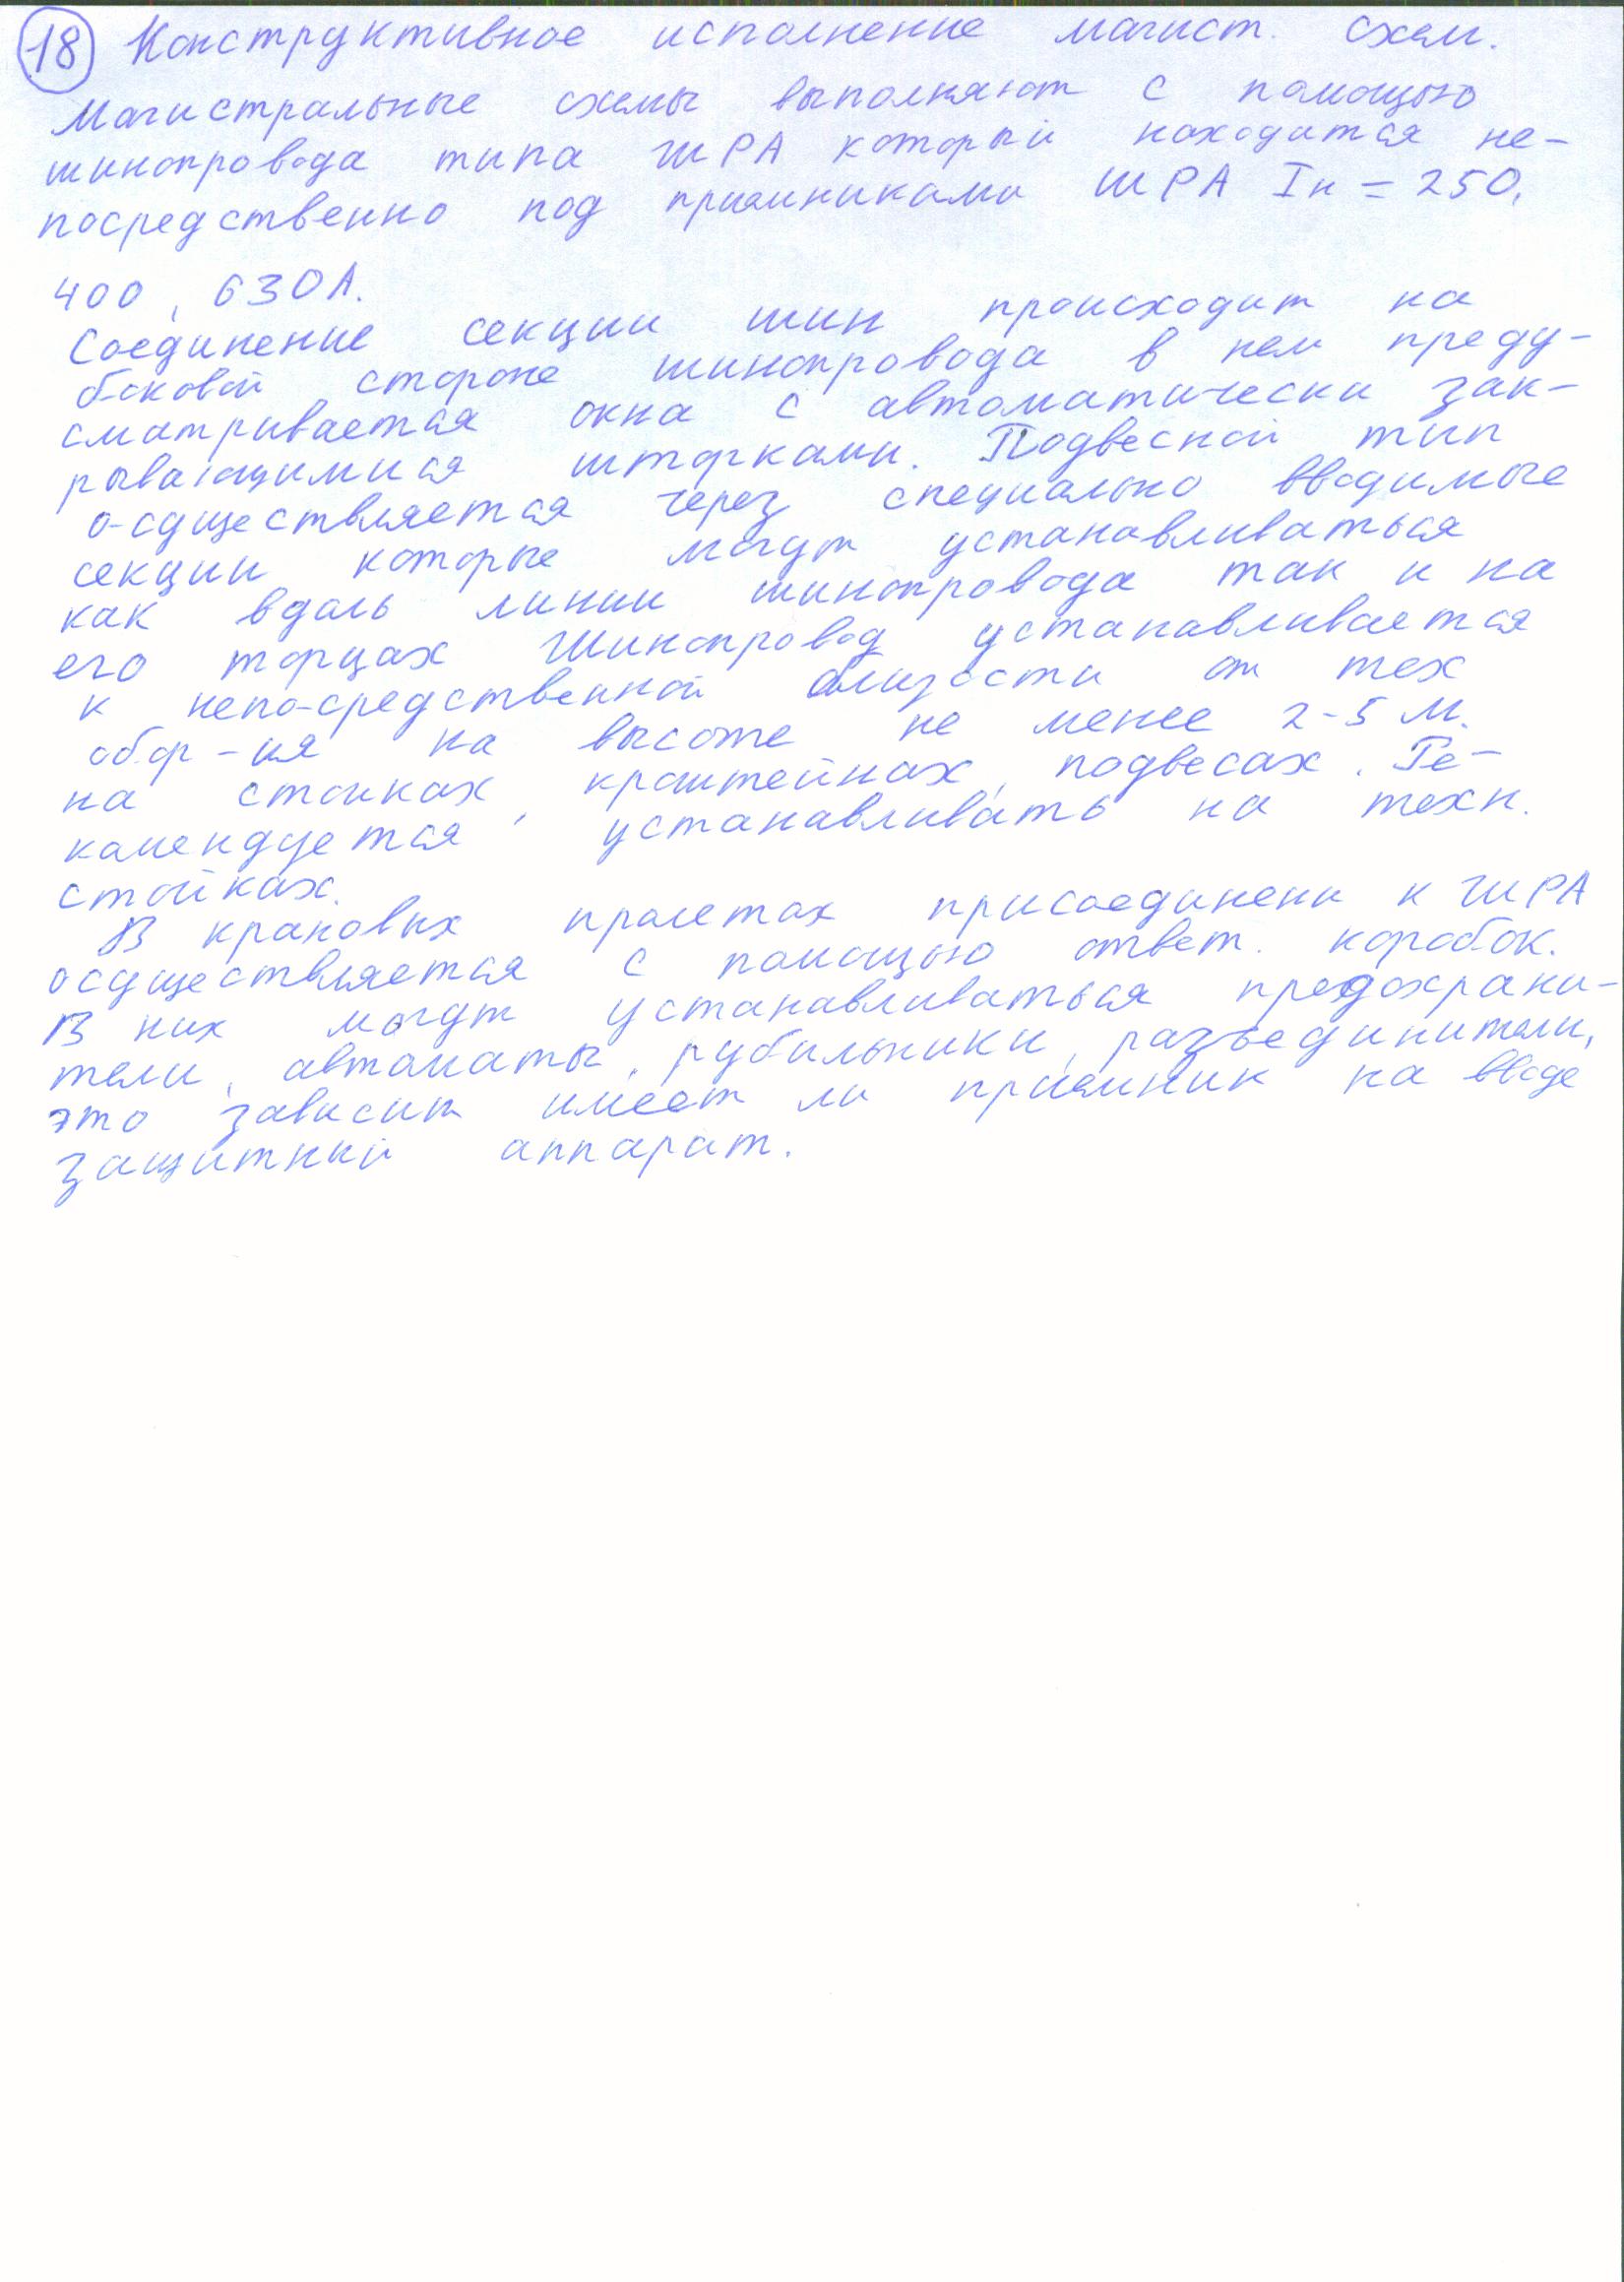 18 Конструктивное исполнение магист. схем.
Магистральные схемы выполняют с помощью
шинопровода типа ШРА который находится не-
посредственно под приемниками ШРА Iн = 250,
400, 630А.
Соединение секции шин происходит на
боковой стороне шинопровода в нем преду-
сматривается окна с автоматически зак-
рывающимися шторками. Подвесной тип
осуществляется через специально вводимые
секции которые могут устанавливаться
как вдоль линии шинопровода так и на
его торцах Шинопровод устанавливается
к непосредственной близости от тех
обор-ия на высоте не менее 2-5 м.
на стойках, крштейнах, подвесах. Ре-
комендуется устанавливать на техн.
стойках.
В крановых пролетах присоединени к ШРА
осуществляется с помощью ответ. коробок.
В них могут устанавливаться предохрани-
тели, автоматы, рубильники, разъединители,
это зависит имеет ли приемник на вводе
защитный аппарат.